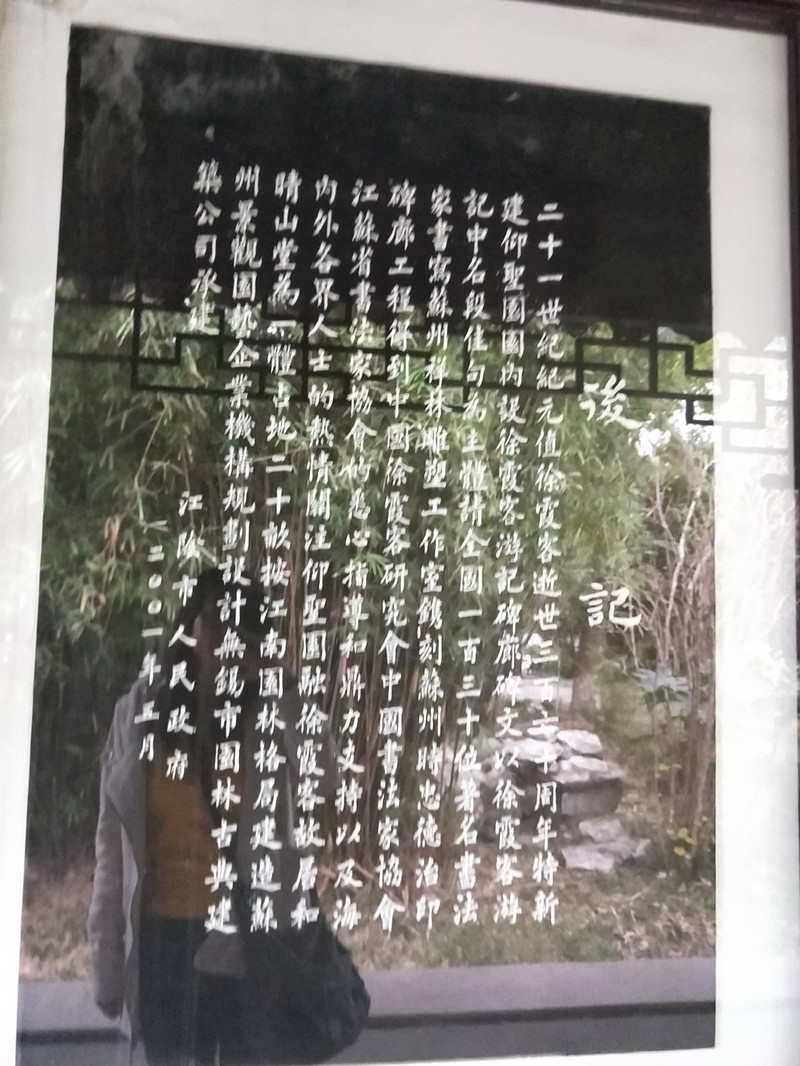 後記
二十一世紀紀元值徐霞客逝世三百六十周年特新
建仰聖園園內設徐霞客游記碑廊碑文以徐霞客游
記中名段佳句為主體請全國一百三十位著名書法
家書寫蘇州祥林雕塑工作室鐫刻蘇州時忠德治印
碑廊工程得到中國徐霞客研究會中國書法家協會
江蘇省書法家協會的悉心指導和鼎力支持以及海
內外各界人士的熱情關注仰聖園融徐霞客故居和
晴山堂為一體占地二十畝按江南園林格局建造蘇
州景觀園藝企業機構規劃設計無錫市園林古典建
築公司承建
江陰市人民政府
二〇〇一年五月